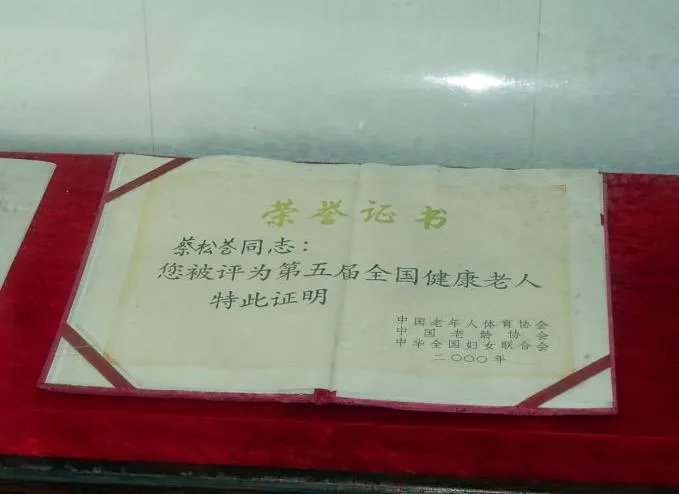 荣誉证书
蔡松荟同志：
您被评为第五届全国健康老人
特此证明
中国老年人体育协会
中国老龄协会
中华全国妇女联合会
二〇〇〇年